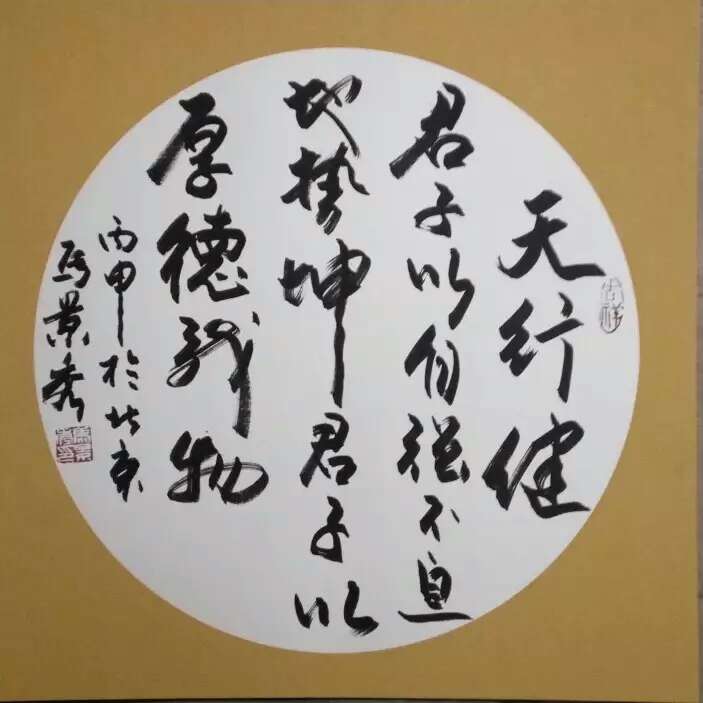 天行健
君子以自强不息
地势坤君子以
厚德载物
丙申於北京
马景秀
吉祥